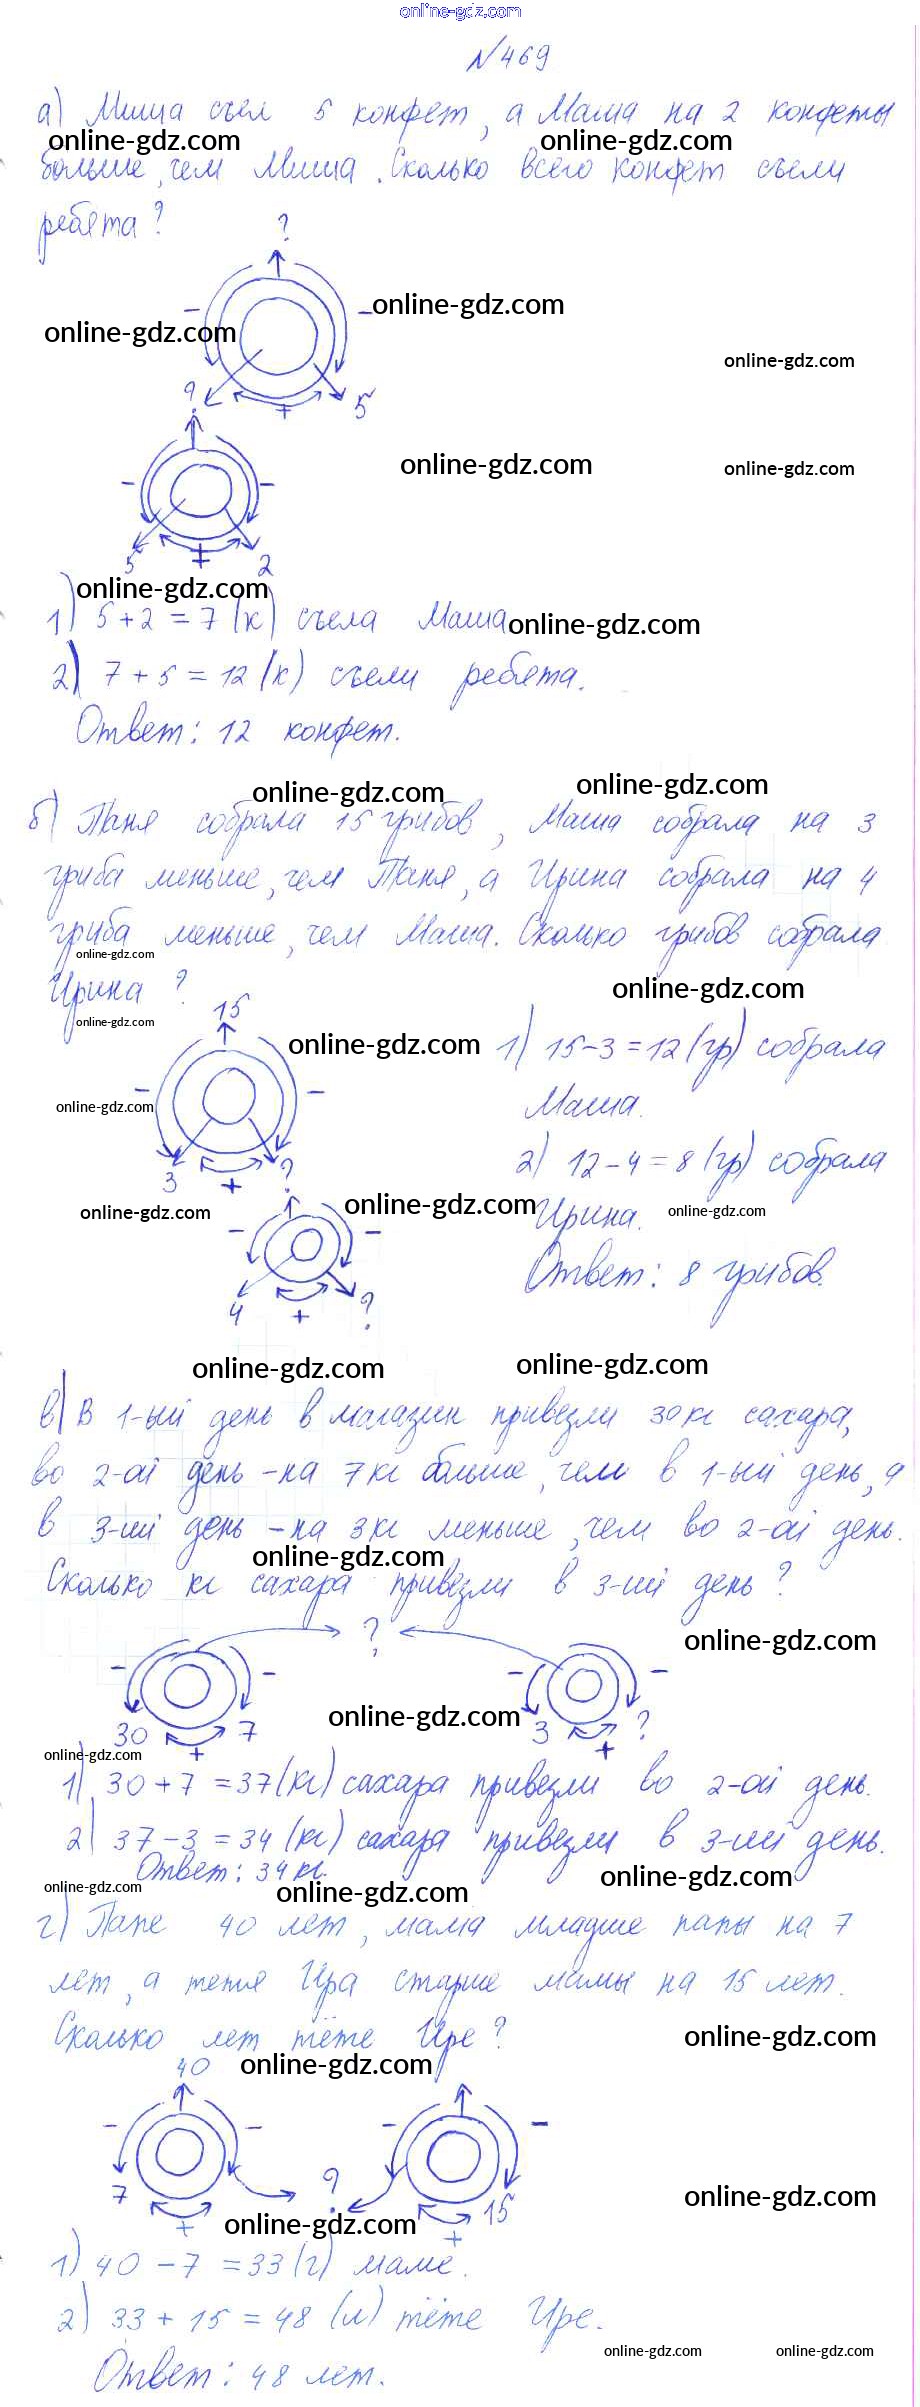 online-gdz.com
№469
а) Миша съел 5 конфет, а Маша на 2 конфеты
online-gdz.com online-gdz.com
больше, чем Миша. Сколько всего конфет съели
ребята?
?
- -
online-gdz.com
online-gdz.com
online-gdz.com
? + 5
online-gdz.com
online-gdz.com
- -
5 + 2
online-gdz.com
1) 5+2=7 (к) съела Маша
online-gdz.com
2) 7+5=12 (к) съели ребята.
Ответ: 12 конфет.
online-gdz.com
online-gdz.com
б) Таня собрала 15 грибов, Маша собрала на 3
гриба меньше, чем Таня, а Ирина собрала на 4
гриба меньше, чем Маша. Сколько грибов собрала
online-gdz.com
Ирина?
online-gdz.com
15
online-gdz.com
online-gdz.com
1) 15-3=12 (гр) собрала
Маша.
- -
online-gdz.com
3 + ?
2) 12-4=8 (гр) собрала
Ирина.
online-gdz.com
online-gdz.com
online-gdz.com
- -
4 + ?
Ответ: 8 грибов.
online-gdz.com
online-gdz.com
в) В 1-ый день в магазин привезли 30 кг сахара,
во 2-ой день - на 7 кг больше, чем в 1-ый день, а
в 3-ий день - на 3 кг меньше, чем во 2-ой день.
online-gdz.com
Сколько кг сахара привезли в 3-ий день?
?
online-gdz.com
- - - -
online-gdz.com
30 + 7 3 + ?
online-gdz.com
1) 30+7=37 (кг) сахара привезли во 2-ой день.
2) 37-3=34 (кг) сахара привезли в 3-ий день.
Ответ: 34 кг.
online-gdz.com
online-gdz.com
online-gdz.com
г) Папе 40 лет, мама младше папы на 7
лет, а тетя Ира старше мамы на 15 лет.
Сколько лет тёте Ире?
online-gdz.com
online-gdz.com
40
- - - -
7 + ? + 15
online-gdz.com
online-gdz.com
1) 40-7=33 (г) маме.
2) 33+15=48 (л) тёте Ире.
online-gdz.com online-gdz.com
Ответ: 48 лет.